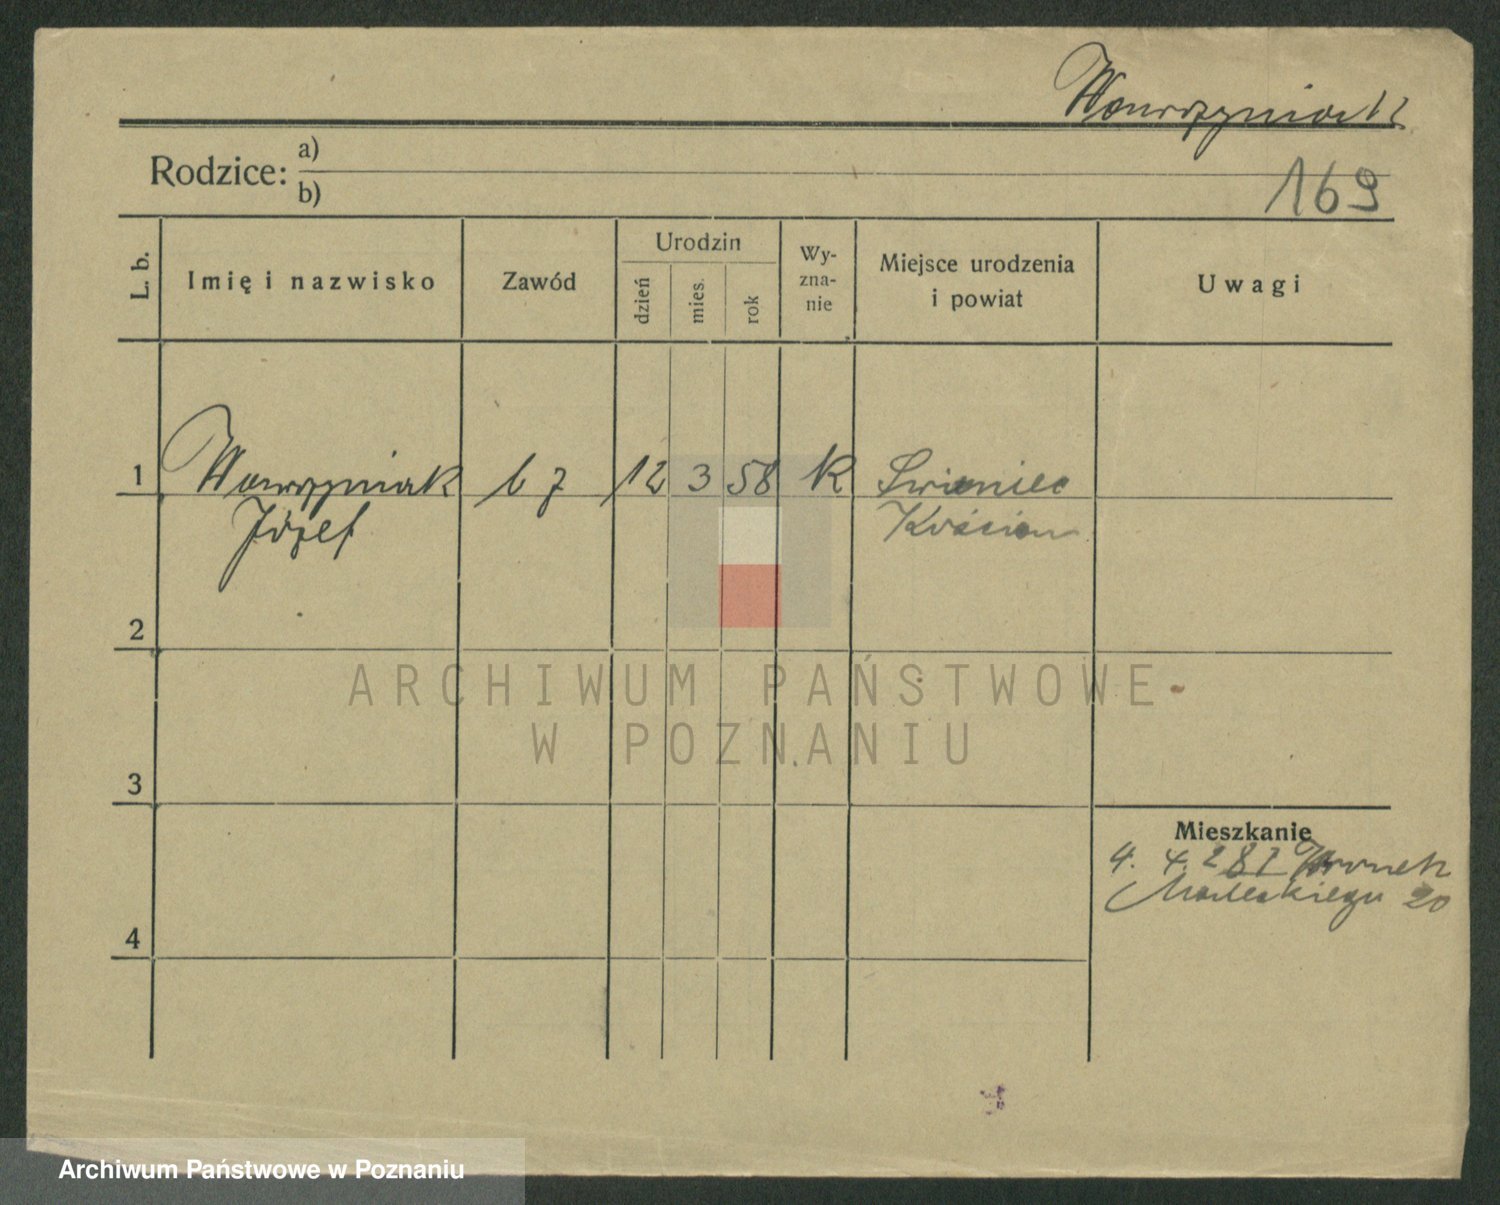 Wawrzyniak
Rodzice: a)
b)
169
L. b.
Imię i nazwisko
Zawód
Urodzin
dzień
mies.
rok
Wy-
zna-
nie
Miejsce urodzenia
i powiat
Uwagi
1
Wawrzyniak
Józef
12
3
58
K
Kościan
2
3
4
Mieszkanie
4. 4. 28
Maleckiego 20
ARCHIWUM PAŃSTWOWE
W POZNANIU
Archiwum Państwowe w Poznaniu